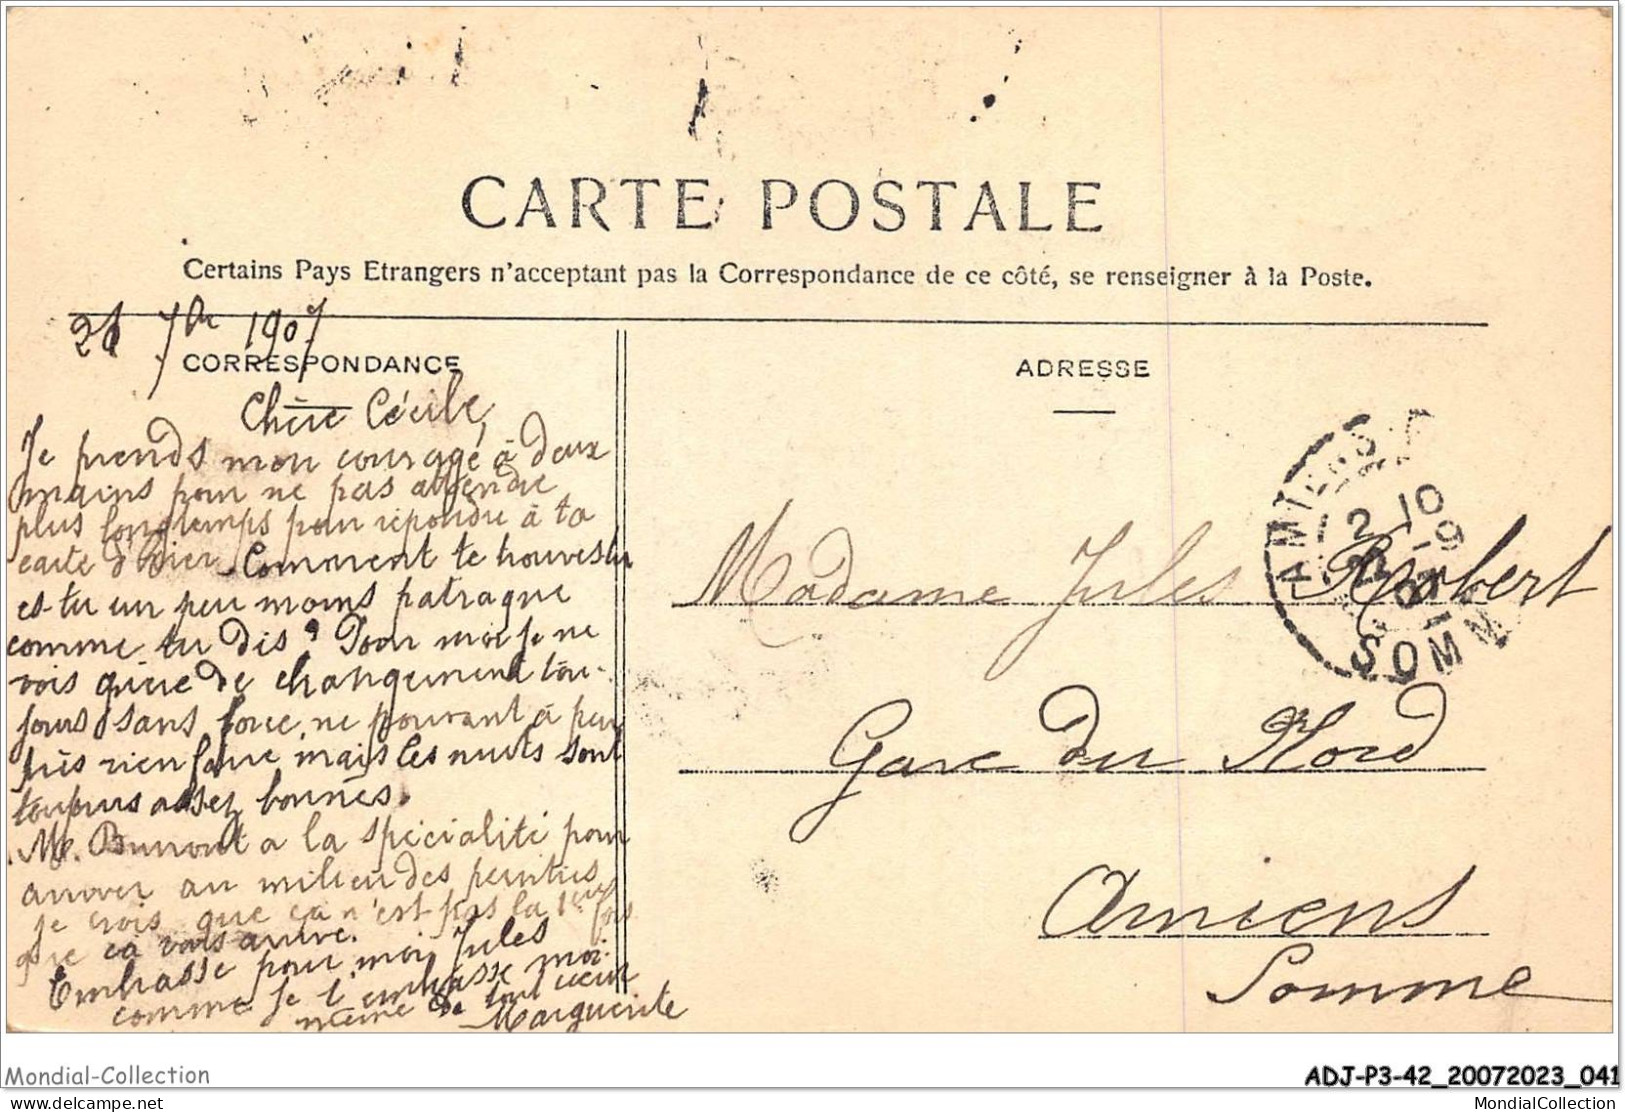 CARTE POSTALE
Certains Pays Etrangers n'acceptant pas la Correspondance de ce côté, se renseigner à la Poste.
26 7bre 1907
CORRESPONDANCE
Chère Cécile,
Je prends mon courage à deux
mains pour ne pas attendre
plus longtemps pour répondre à ta
carte d'hier. Comment te trouves tu
es-tu un peu moins patraque
comme tu dis? Pour moi je ne
vois guère de changement tou-
jours sans force, ne pouvant à peu
près rien faire, mais les nuits sont
toujours assez bonnes.
a la spécialité pour
arriver au milieu des
je crois que ça n'est pas la 1ère fois
que ça vous arrive.
Embrasse pour moi Jules
comme je t'embrasse moi-
même de tout cœur
Marguerite
ADRESSE
AMIENS
2 10
SOMME
Madame Jules Robert
Gare du Nord
Amiens
Somme
Mondial-Collection
ADJ-P3-42_20072023_041
delcampe.net
MondialCollection